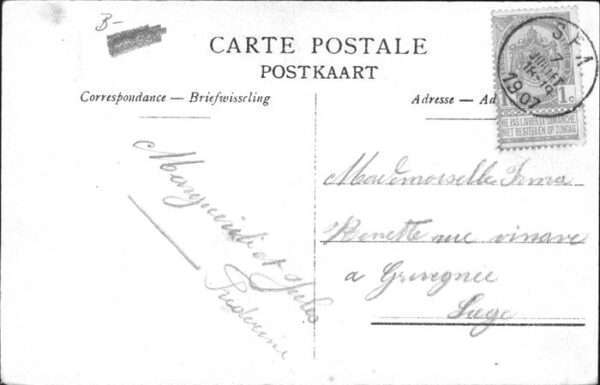 B-
CARTE POSTALE
POSTKAART
Correspondance — Briefwisseling
Adresse — Ad
SPA
7
JUILLET
1907
1c
NE PAS LIVRER LE DIMANCHE
NIET BESTELLEN OP ZONDAG
Marguerite et Jules
Mademoiselle Irma
rue vinave
a Grivegnee
Liege